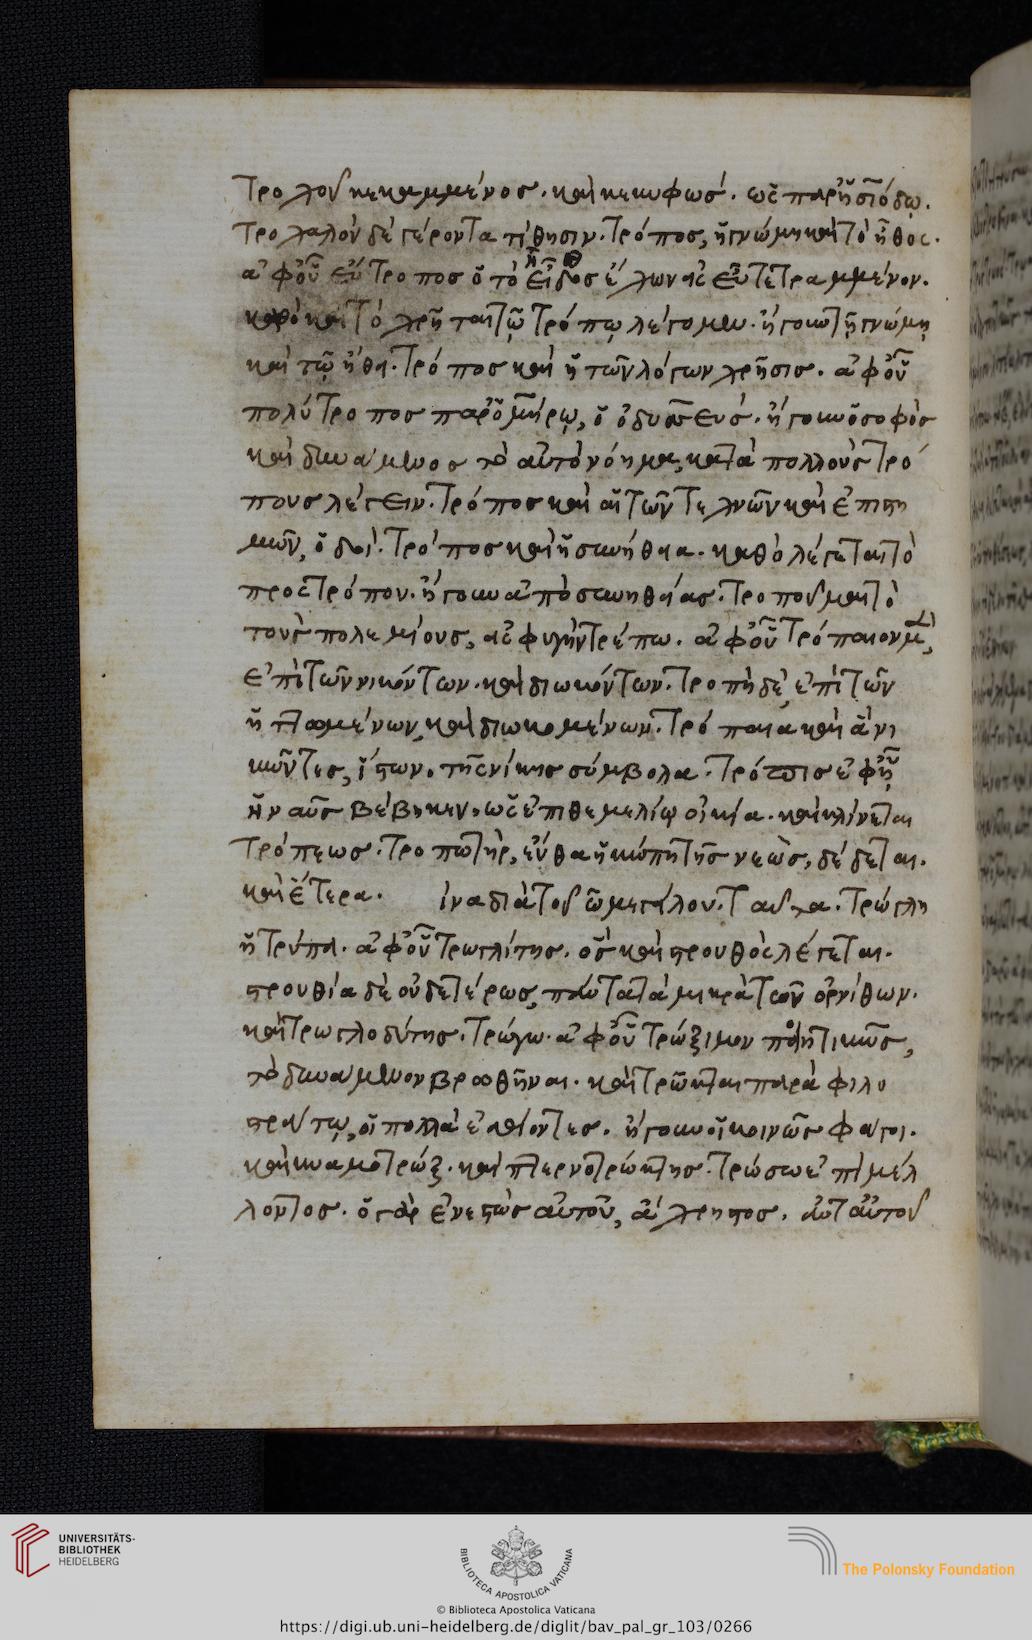 τροχοῦ κεκαμμένος. καὶ κεκυφώς. ὡς παρ' ἡσιόδῳ.
τροχαλὸν δὲ γέροντα τίθησιν. τρόπος, ἡ γνώμη καὶ τὸ ἦθος.
ἀφ' οὗ εὔτροπος ὁ τὸ εἶδος ἔχων εὖ τετραμμένον.
καθὸ καὶ τὸ χρῆται τῷ τρόπῳ λέγομεν. ἤγουν τῇ γνώμῃ
καὶ τῷ ἤθει. τρόπος καὶ ἡ τῶν λόγων χρῆσις. ἀφ' οὗ
πολύτροπος παρ' ὁμήρῳ, ὁ ὀδυσσεύς. ἤγουν ὁ σοφὸς
καὶ δυνάμενος τὸ αὐτὸ νόημα, κατὰ πολλοὺς τρό
πους λέγειν. τρόπος καὶ αἱ τῶν τεχνῶν καὶ ἐπιστη
μῶν, ὁδοί. τρόπος καὶ ἡ συνήθεια. καθὸ λέγεται τὸ
πρὸς τρόπον. ἤγουν ἀπὸ συνηθείας. τροποῦμαι τὸ
τοὺς πολεμίους, εἰς φυγὴν τρέπω. ἀφ' οὗ τρόπαιον μὲν,
ἐπὶ τῶν νικόντων. καὶ διωκόντων. τροπὴ δὲ, ἐπὶ τῶν
ἡττωμένων, καὶ διωκομένων. τρόπαια καὶ ἃ νι
κῶντες, ἵστων. τῆς νίκης σύμβολα. τρόπις ἐφ' ᾗ
ἡ ναῦς βέβηκεν. ὡς ἐπὶ θεμελίῳ οἰκία. καὶ κλίνεται
τρόπεως. τροπωτὴρ, ἔνθα ἡ κώπη τῆς νεὼς, δέδεται.
καὶ ἕτερα. ἵνα διὰ τοῦ ω μεγάλου. ταῦτα. τρώγλη
ἡ τρύπα. ἀφ' οὗ τρωγλίτης. ὃς καὶ στρουθὸς λέγεται.
στρουθία δὲ οὐδετέρως, πάντα τὰ μικρὰ τῶν ὀρνίθων.
καὶ τρωγλοδύτης. τρώγω. ἀφ' οὗ τρώξιμον ποιητικῶς,
τὸ δυνάμενον βρωθῆναι. καὶ τρῶκται παρὰ φιλο
στράτῳ, οἱ πολλὰ ἐσθίοντες. ἤγουν οἱ κοινῶς φάγοι.
καὶ κυαμοτρώξ. καὶ πτερνοτρώκτης. τρώσω ἐπὶ μέλ
λοντος. ὁ γὰρ ἐνεστὼς αὐτοῦ, ἄχρηστος. ἀντ' αὐτοῦ
UNIVERSITÄTS-
BIBLIOTHEK
HEIDELBERG
BIBLIOTECA APOSTOLICA VATICANA
The Polonsky Foundation
© Biblioteca Apostolica Vaticana
https://digi.ub.uni-heidelberg.de/diglit/bav_pal_gr_103/0266